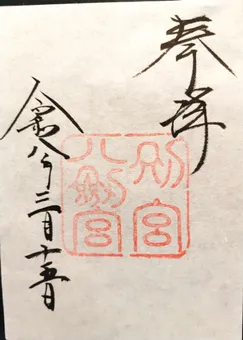 奉拝
別宮
八剣宮
令和八年三月十五日